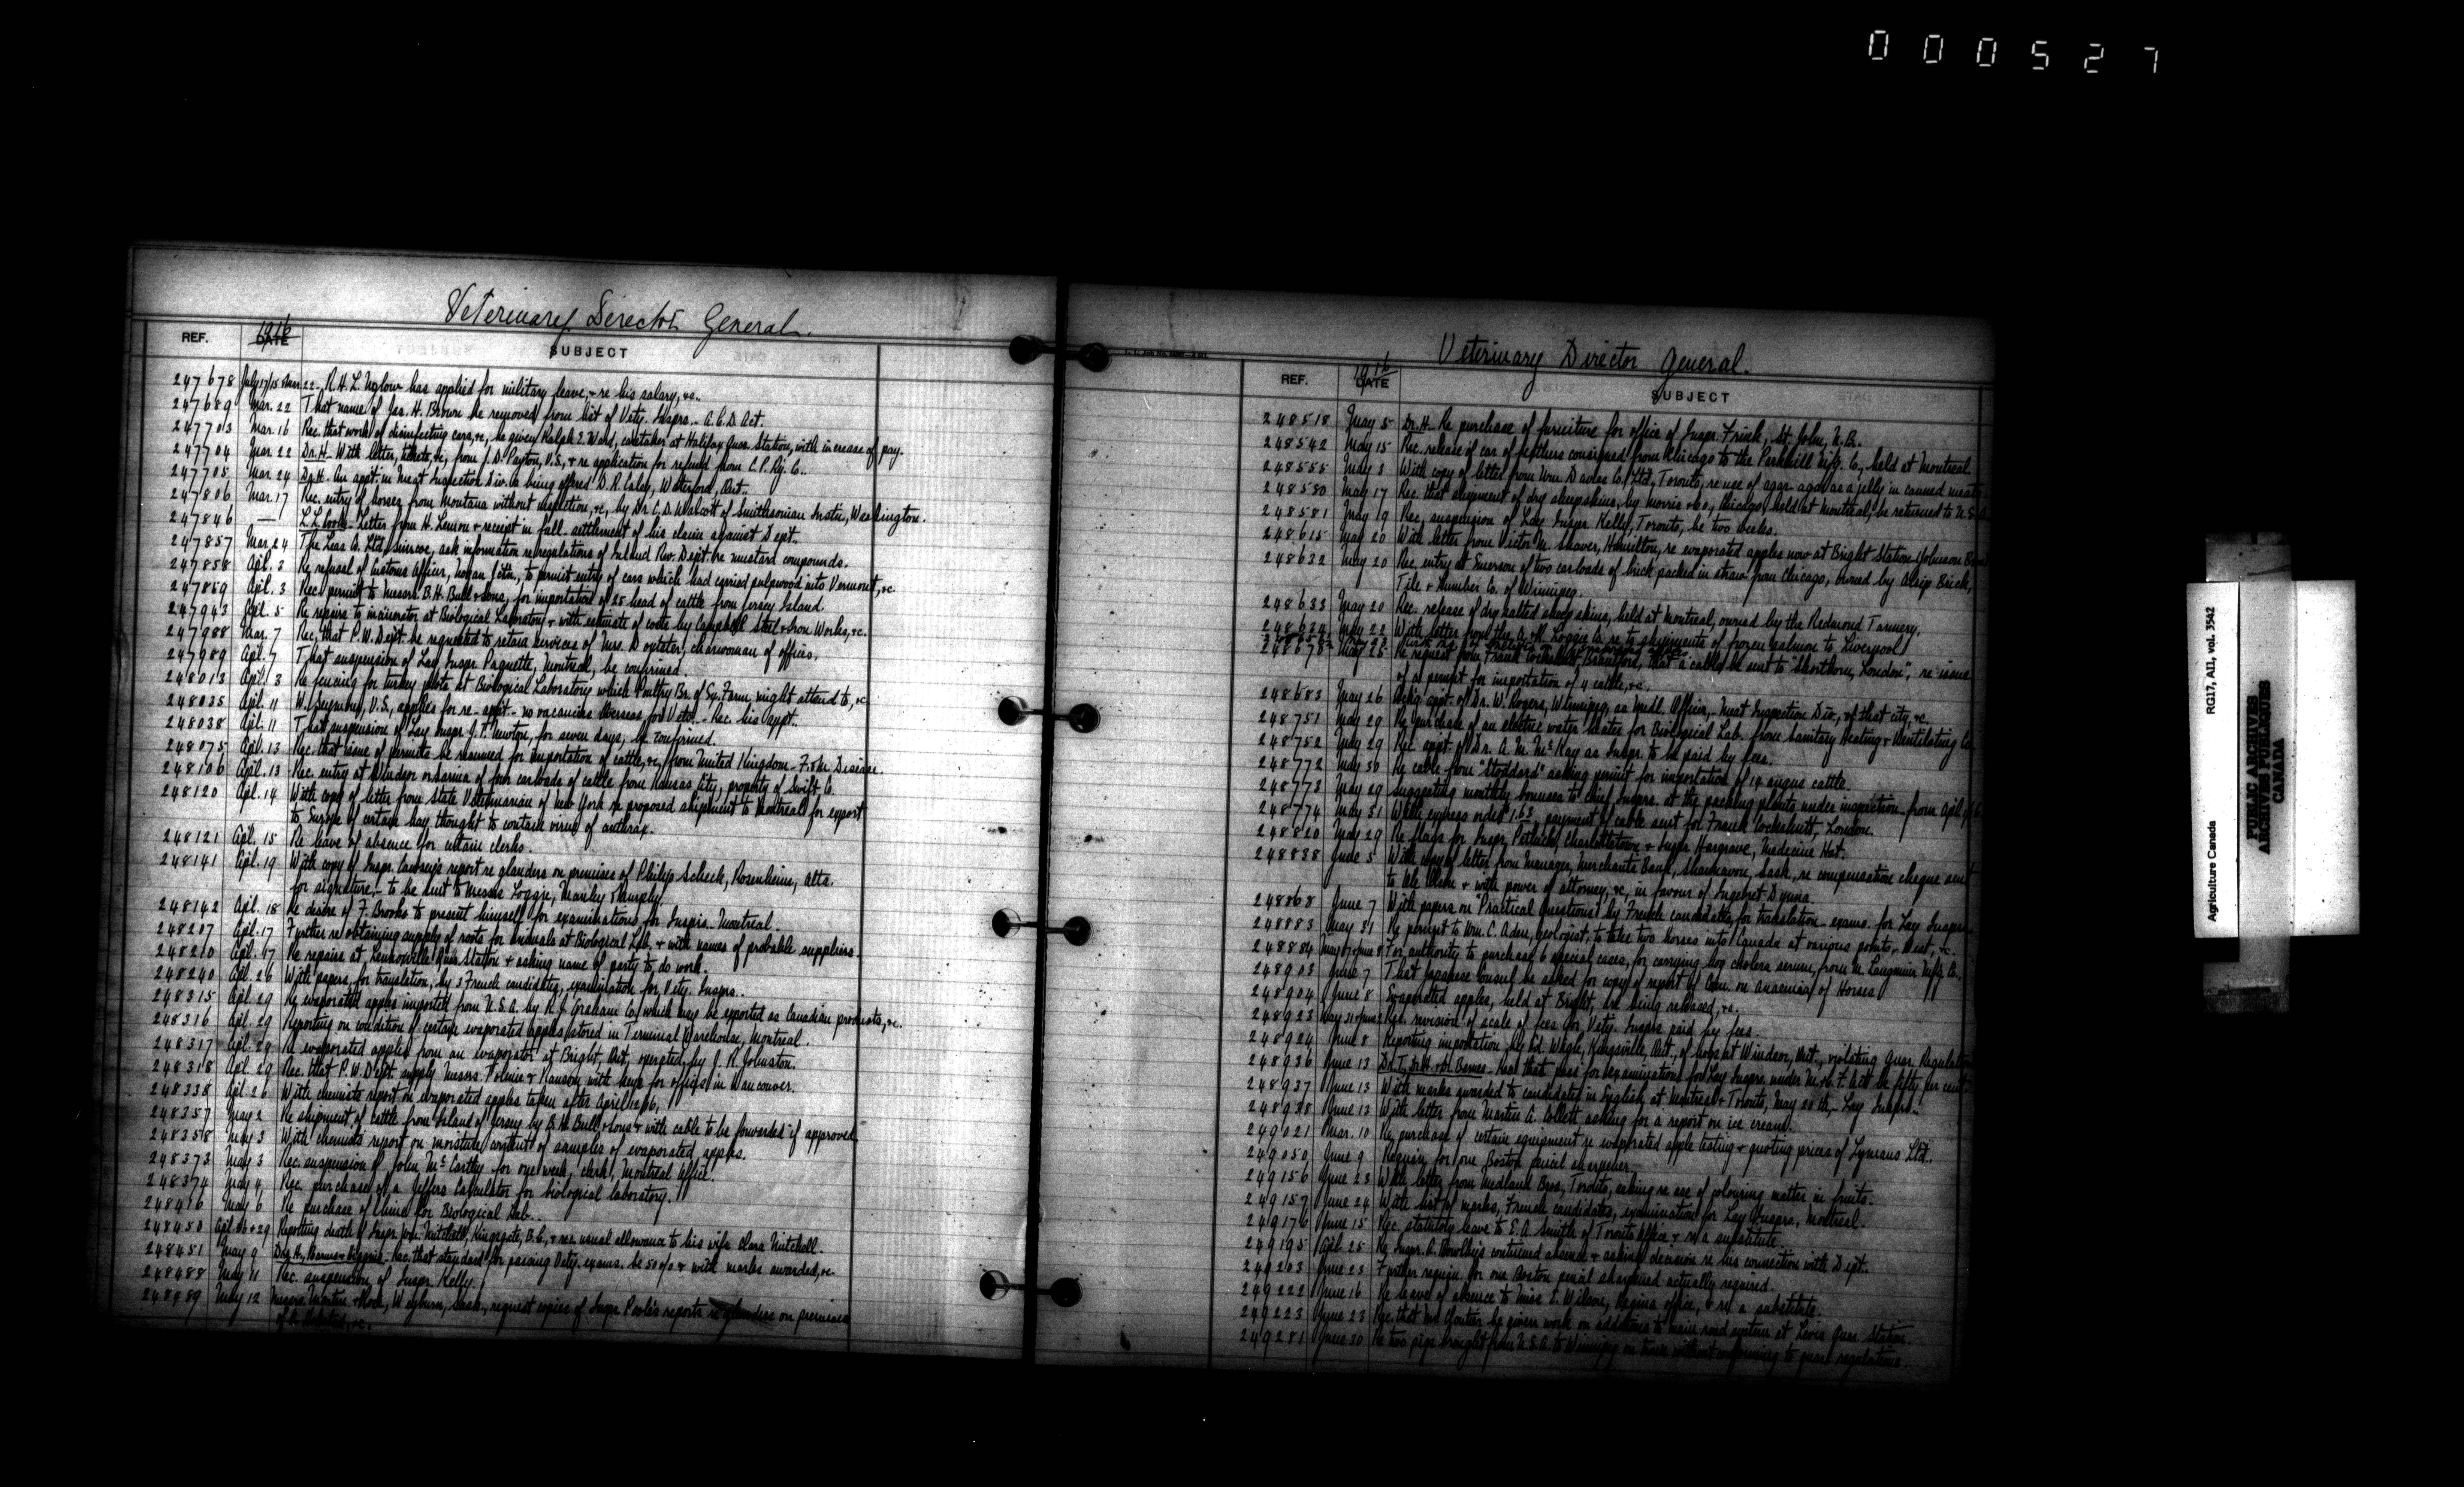 000527
Veterinary Director General.
REF. 1916 DATE SUBJECT
247678 July 17/15 & Mar. 22 R.H.L. Uglow has applied for military leave, & re his salary, &c.
247689 Mar. 22 That name of Jas. H. Brown be removed from list of Vety. Insprs. - A.C.D. Act.
247703 Mar. 16 Rec. that work of disinfecting cars, &c, be given Ralph L. Ward, caretaker at Halifax Quar. Station, with increase of pay.
247704 Mar 22 Dr. H. With letter, tickets, &c, from J.D. Payton, V.S., & re application for refund from C.P. Ry. Co.
247705 Mar 24 Dr. H. An appt. in Meat Inspection Div. to being offered D.R. Caley, Waterford, Ont.
247806 Mar. 17 Rec. entry of horses from Montana without inspection, &c, by Dr. C.D. Walcott of Smithsonian Instn, Washington.
247846 — Letter from H. Lemon & receipt in full settlement of his claim against Dept.
247857 Mar 24 The Leas Co. Ltd, Simcoe, ask information re regulations of Inland Rev. Dept. re mustard compounds.
247858 Apl. 3 Re refusal of Customs Officer, to permit entry of cars which had carried pulpwood into Vermont, &c.
247859 Apl. 3 Rec. permit to Messrs. B.H. Bull & Sons, for importation of 25 head of cattle from Jersey Island.
247943 Apl. 5 Re repairs to incinerator at Biological Laboratory & with estimate of cost by Campbell Steel & Iron Works, &c.
247988 Mar. 7 Rec. that P.W. Dept. be requested to retain services of Mrs. charwoman of offices.
247989 Apl. 7 That suspension of Lay Inspr. Paquette, Montreal, be confirmed.
248013 Apl. 3 Re fencing for turkey plots at Biological Laboratory which Poultry Br. of Ex. Farm might attend to, &c
248035 Apl. 11 W. Seymour, V.S., applies for re-appt. - no vacancies Overseas for Vets. - Rec. his appt.
248038 Apl. 11 That suspension of Lay Inspr. J.F. Newton, for seven days, be confirmed.
248075 Apl. 13 Rec. that issue of permits be resumed for importation of cattle, &c, from United Kingdom - F. & M. Disease.
248106 Apl. 13 Rec. entry at Windsor or Sarnia of four carloads of cattle from Kansas City, property of Swift Co.
248120 Apl. 14 With copy of letter from State Veterinarian of New York re proposed shipment to Montreal for export
to Europe of certain hay thought to contain virus of anthrax.
248121 Apl. 15 Re leave of absence for certain clerks.
248141 Apl. 19 With copy of Inspr. report re glanders on premises of Philip Scheck, Rosenheim, Alta.
for signature - to be sent to Messrs Loggie, Manley &
248142 Apl. 18 Re desire of F. Brooks to present himself for examinations for Insprs. - Montreal.
248207 Apl. 17 Further re obtaining supply of roots for animals at Biological Lab., & with names of probable suppliers.
248210 Apl. 17 Re repairs at Lennoxville Quar. Station & asking name of party to do work.
248240 Apl. 26 With papers, for translation, by 3 French candidates, examination for Vety. Insprs.
248315 Apl. 29 Re evaporated apples imported from U.S.A. by R.J. Graham Co. which may be exported as Canadian products, &c.
248316 Apl. 29 Reporting on condition of certain evaporated apples stored in Terminal Warehouse, Montreal.
248317 Apl. 29 Re evaporated apples from an evaporator at Bright, Ont, operated by J.R. Johnston.
248318 Apl. 29 Rec. that P.W. Dept. supply Messrs. Tolmie & Ransom with keys for offices in Vancouver.
248338 Apl. 26 With chemists report on evaporated apples taken after April 12/16.
248357 May 2 Re shipment of cattle from Island of Jersey by B.H. Bull & Sons & with cable to be forwarded if approved.
248358 May 3 With chemists report on moisture content of samples of evaporated apples.
248373 May 3 Rec. suspension of John McCarthy for one week, clerk, Montreal Office.
248374 May 4 Rec. purchase of a Jeffers Calculator for biological laboratory.
248416 May 6 Re purchase of for Biological Lab.
248450 Apl. 26 & 29 Reporting death of Inspr. Wm. Mitchell, Kingsgate, B.C., & rec. usual allowance to his wife Clara Mitchell.
248451 May 9 Drs. H., Barnes & Higgins. Rec. that standard for passing Vety. exams. be 50% & with marks awarded, &c
248488 May 11 Rec. suspension of Inspr. Kelly.
248489 May 12 Messrs. Martin & Weyburn, Sask., request copies of Inspr. Poole's reports re glanders on premises
Veterinary Director General.
REF. 1916 DATE SUBJECT
248518 May 5 Dr. H. Re purchase of furniture for office of Inspr. Frink, St. John, N.B.
248542 May 15 Rec. release of car of feathers consigned from Chicago to the Parkhill Mfg. Co., held at Montreal.
248555 May 3 With copy of letter from Wm. Davies Co. Ltd., Toronto, re use of agar-agar as a jelly in canned meats.
248580 May 17 Rec. that shipment of dry sheepskins, by Morris & Co., Chicago, held at Montreal, be returned to U.S.A.
248581 May 19 Rec. suspension of Lay Inspr. Kelly, Toronto, be two weeks.
248615 May 20 With letter from Victor M. Shaver, Hamilton, re evaporated apples now at Bright Station - Johnson
248632 May 20 Rec. entry at Emerson of two carloads of brick packed in straw from Chicago, owned by Alsip Brick,
Tile & Lumber Co. of Winnipeg.
248633 May 20 Rec. release of dry salted sheep skins, held at Montreal, owned by the Redmond Tannery.
248634 May 22 With letter from the A. & R. Loggie Co. re to shipments of frozen salmon to Liverpool
248675 May 25 Re request from Frank Cockshutt, Brantford, that a cable be sent to "Shorthorn, London", re issue
of a permit for importation of 4 cattle, &c.
248683 May 26 appt. of Dr. W. Rogers, Winnipeg, as Medl. Officer, Meat Inspection Div., of that city, &c.
248751 May 29 Re purchase of an electric water heater for Biological Lab. from Sanitary Heating & Ventilating Co.
248752 May 29 Rec. appt. of Dr. A.M. McKay as Inspr. to be paid by fees.
248772 May 30 Re cable from "Stoddard" asking permit for importation of 14 angus cattle.
248773 May 29 Suggesting monthly bonuses to Chief Insprs. at the packing plants under inspection - from Apl.
248774 May 31 With express order 1.63, payment of cable sent for Frank Cockshutt, London.
248820 May 29 Re flags for Inspr. Pethick, Charlottetown & Inspr. Hargrave, Medicine Hat.
248838 June 5 With copy of letter from Manager, Merchants Bank, Shaunavon, Sask., re compensation cheque sent
to Ole Olson & with power of attorney, &c, in favour of Ingebret Dynna.
248868 June 7 With papers on "Practical Questions" by French candidates, for translation - exams. for Lay Inspr.
248883 May 31 Re permit to Wm. C. Alden, geologist, to take two horses into Canada at various points, West, &c.
248884 May 17 & June 8 For authority to purchase 6 special cases, for carrying hog cholera serum, from McLaughlin Mfg. Co.
248903 June 7 That Japanese Consul be asked for copy of report of Com. on Anaemia of Horses
248904 June 8 Evaporated apples, held at Bright, are being released, &c.
248923 May 31 & June 2 Rec. revision of scale of fees for Vety. Insprs. paid by fees.
248924 June 8 Reporting importation by Ed. Wigle, Kingsville, Ont., of hogs at Windsor, Ont., violating Quar. Regulations
248936 June 13 Dr. T., Dr. H. & Dr. Barnes. Rec. that pass for examinations for Lay Inspr. under M. & C.F. Act be fifty per cent
248937 June 13 With marks awarded to candidates in English at Montreal & Toronto, May 20th, - Lay Inspr.
248938 June 13 With letter from Martin A. Collett asking for a report on ice cream.
249021 Mar. 10 Re purchase of certain equipment re evaporated apple testing & quoting prices of Lymans Ltd.
249050 June 9 Requisn. for one Boston pencil sharpener.
249156 June 23 With letter from Medland Bros., Toronto, asking re use of colouring matter in fruits.
249157 June 24 With list of marks, French candidates, examination for Lay Inspr., Montreal.
249176 June 15 Rec. statutory leave to E.A. Smith of Toronto Office & re a substitute.
249195 Apl. 25 Re Inspr. A. continued absence & asking decision re his connection with Dept.
249203 June 23 Further requisn. for one Boston pencil sharpener actually required.
249222 June 16 Re leave of absence to Miss E. Wilson, Regina office, & re a substitute.
249223 June 23 Rec. that Mr. be given work on additions to main road system at Levis Quar. Station.
249281 June 30 Re two pigs brought from U.S.A. to Winnipeg on train without conforming to quar. regulations.
Agriculture Canada RG17, AII, vol. 3542
PUBLIC ARCHIVES
ARCHIVES PUBLIQUES
CANADA